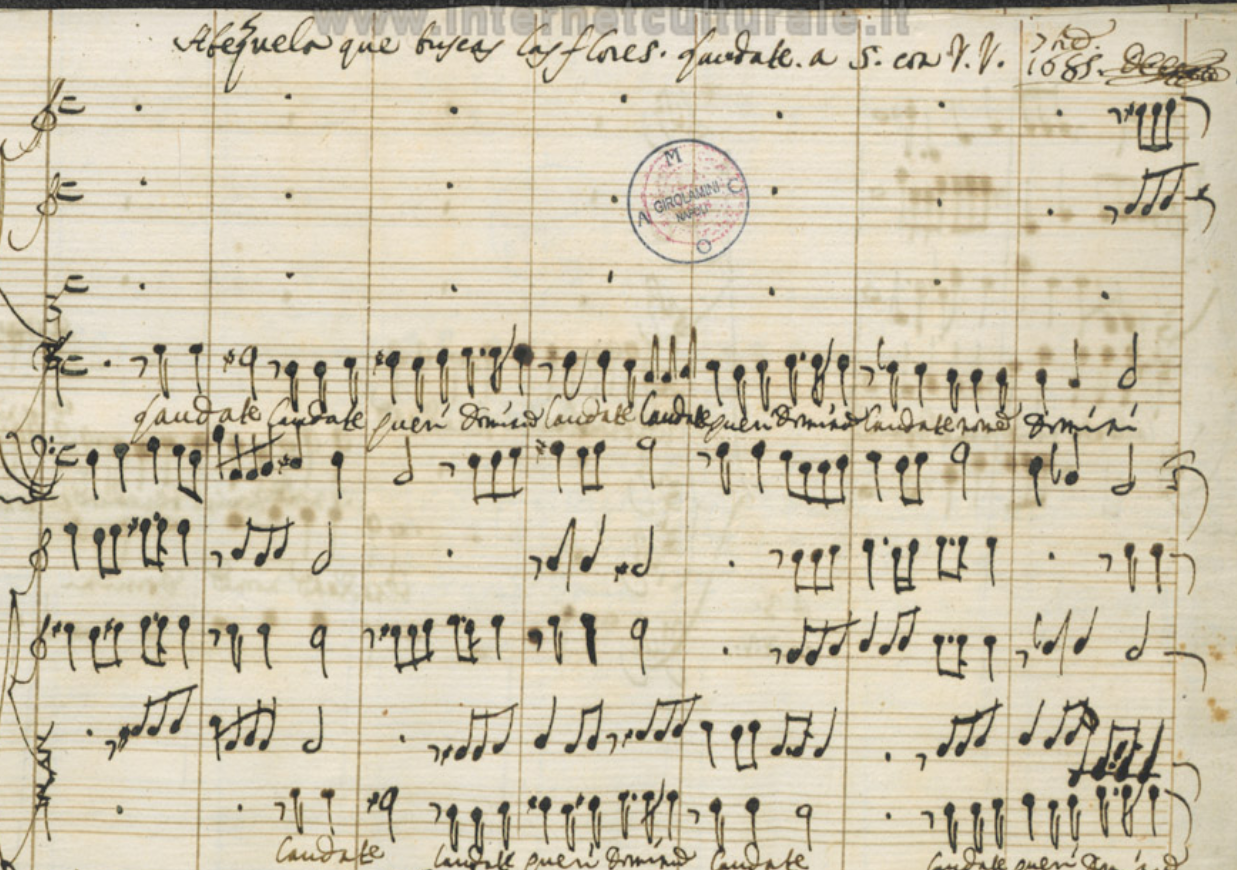 www.internetculturale.it
Abezuela que buscas las flores. Laudate. a 5. con V.V. 1685.
M C O A
GIROLAMINI
NAPOLI
laudate laudate pueri Dominũ laudate laudate pueri Dominũ laudate nomẽ Domini
laudate laudate pueri Dominũ laudate laudate pueri